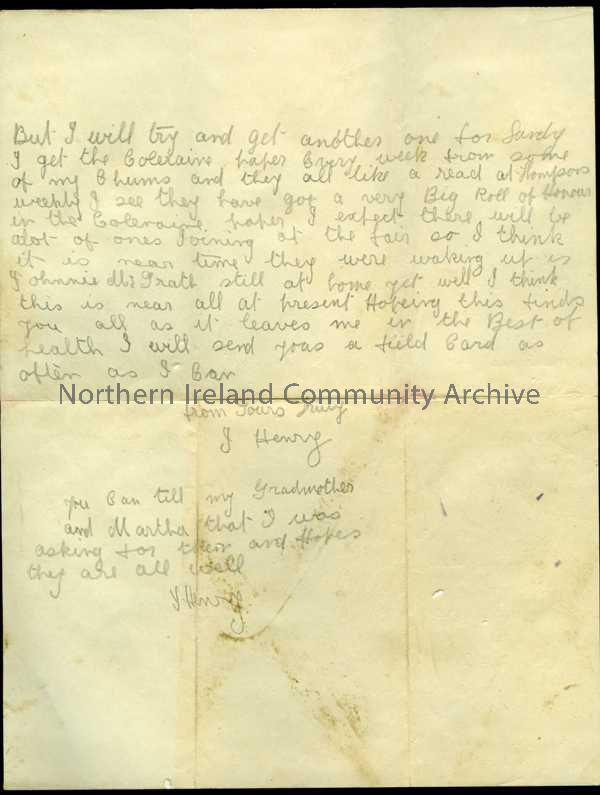 But I will try and get another one for Sandy
I get the Coleraine paper Every week from some
of my Chums and they all like a read at Thompsons
weekly I see they have got a very Big Roll of Honour
in the Coleraine paper I expect there will be
alot of ones Joining at the fair so I think
it is near time they were waking up is
Johnnie McGrath still at home yet well I think
this is near all at present Hopeing this finds
you all as it leaves me in the Best of
health I will send yous a field Card as
often as I Can
Northern Ireland Community Archive
from Yours Truly
J Henry
you Can tell my Gradmother
and Martha that I was
asking for them and Hopes
they are all well
J Henry